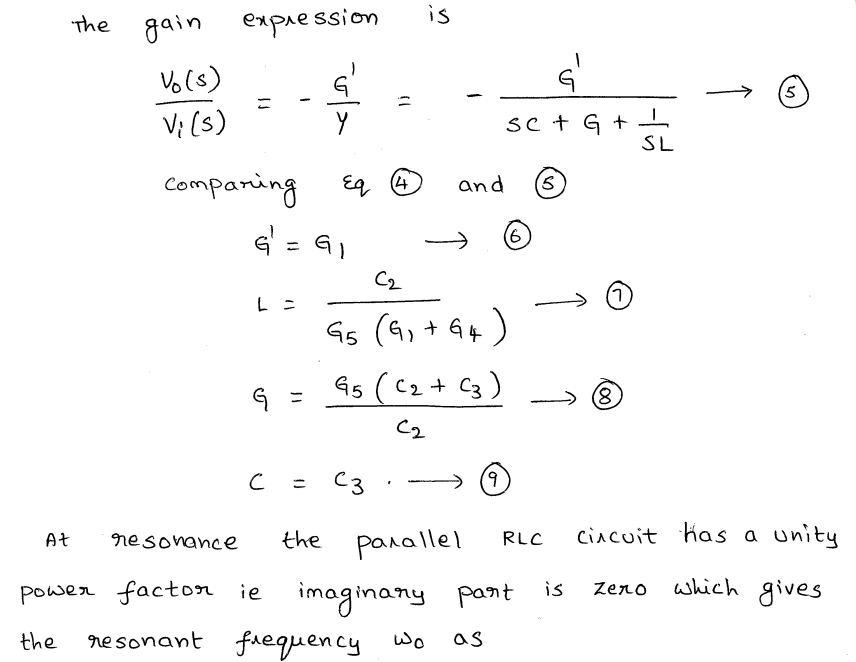 The gain expression is
Vo(s) / Vi(s) = - G' / Y = - G' / (SC + G + 1/SL) → (5)
comparing Eq (4) and (5)
G' = G1 → (6)
L = C2 / G5 (G1 + G4) → (7)
G = G5 (C2 + C3) / C2 → (8)
C = C3 . → (9)
At resonance the parallel RLC circuit has a unity
power factor ie imaginary part is zero which gives
the resonant frequency wo as